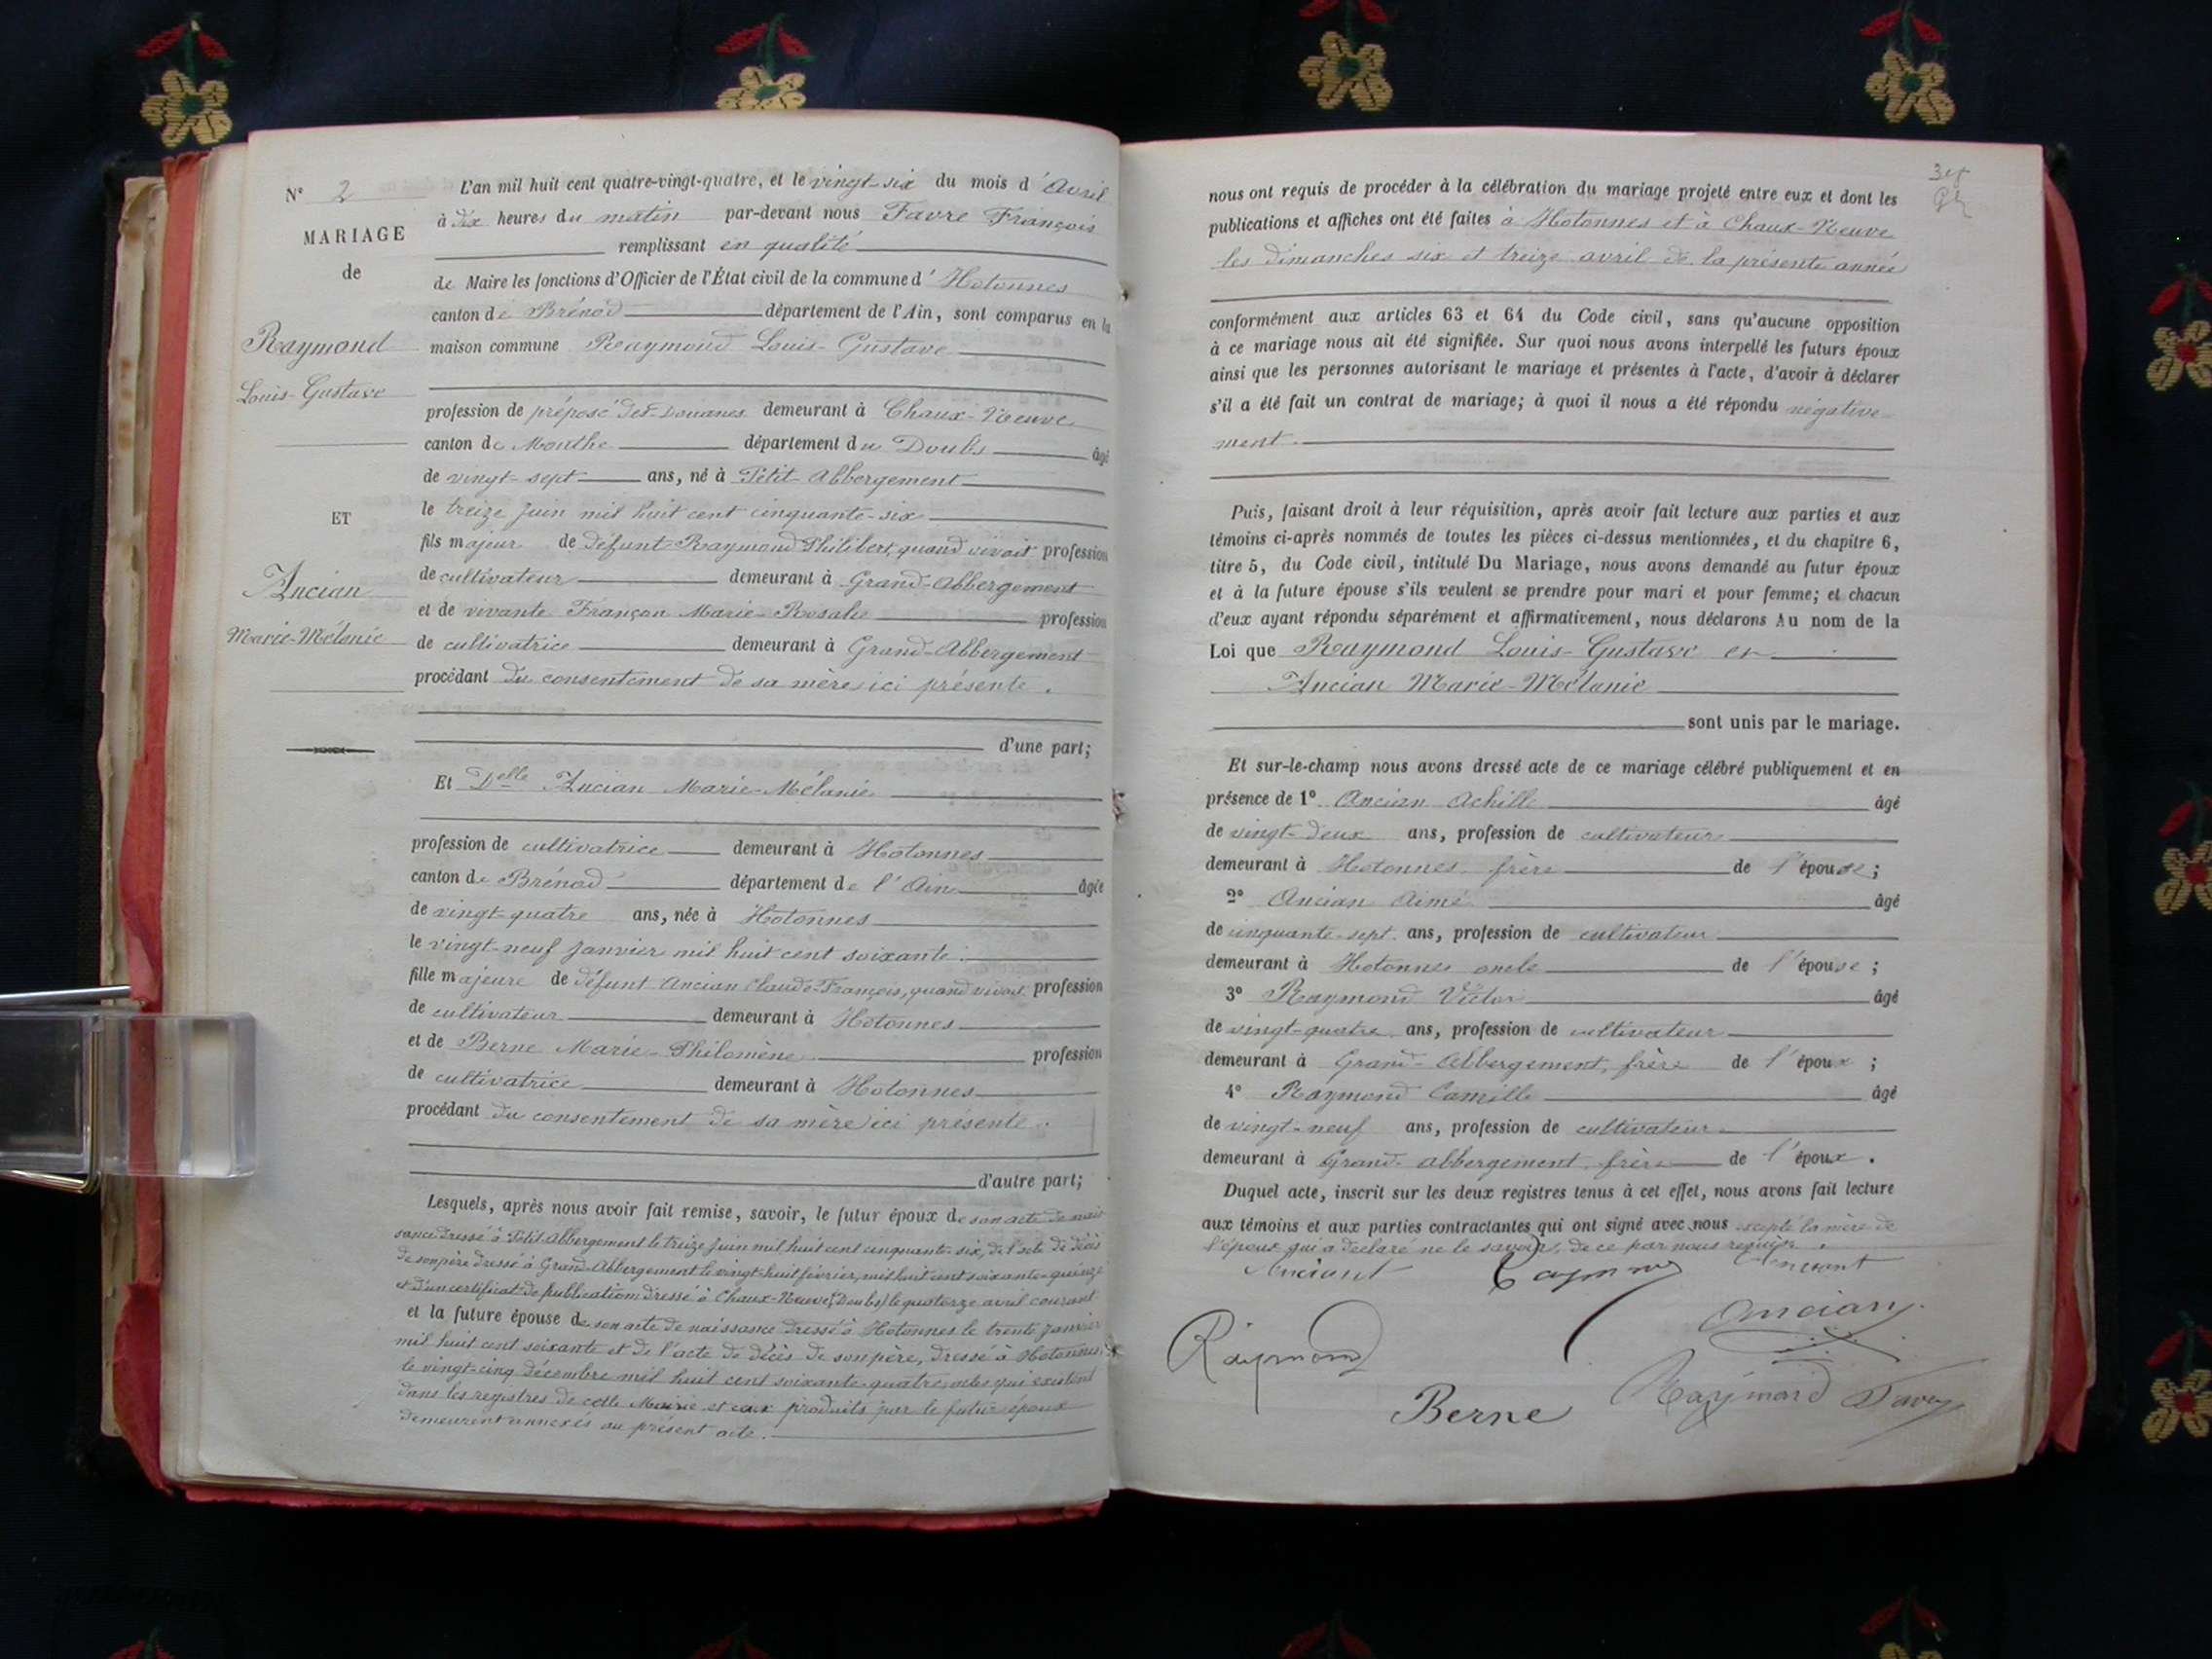 N° 2
MARIAGE
de
Raymond
Louis-Gustave
ET
Ancian
Marie-Mélanie
L'an mil huit cent quatre-vingt-quatre, et le vingt-six du mois d'Avril
à dix heures du matin par-devant nous Favre François
remplissant en qualité
de Maire les fonctions d'Officier de l'État civil de la commune d'Hotonnes
canton de Brénod département de l'Ain, sont comparus en la
maison commune Raymond Louis-Gustave
profession de préposé des Douanes demeurant à Chaux-Neuve
canton de Mouthe département du Doubs âgé
de vingt-sept ans, né à Petit-Abbergement
le treize juin mil huit cent cinquante-six
fils majeur de défunt Raymond Philibert, quand vivait profession
de cultivateur demeurant à Grand-Abbergement
et de vivante Françon Marie-Rosalie profession
de cultivatrice demeurant à Grand-Abbergement
procédant du consentement de sa mère ici présente.
d'une part;
Et Delle Ancian Marie-Mélanie
profession de cultivatrice demeurant à Hotonnes
canton de Brénod département de l'Ain âgée
de vingt-quatre ans, née à Hotonnes
le vingt-neuf janvier mil huit cent soixante.
fille majeure de défunt Ancian Claude-François, quand vivait profession
de cultivateur demeurant à Hotonnes
et de Berne Marie-Philomène profession
de cultivatrice demeurant à Hotonnes
procédant du consentement de sa mère ici présente.
d'autre part;
Lesquels, après nous avoir fait remise, savoir, le futur époux de son acte de nais
sance dressé à Petit-Abbergement le treize juin mil huit cent cinquante-six, de l'acte de décès
de son père dressé à Grand-Abbergement le vingt-huit février, mil huit cent soixante-quinze
et d'un certificat de publication dressé à Chaux-Neuve (Doubs) le quatorze avril courant
et la future épouse de son acte de naissance dressé à Hotonnes le trente janvier
mil huit cent soixante et de l'acte de décès de son père, dressé à Hotonnes,
le vingt-cinq décembre mil huit cent soixante-quatre, actes qui existent
dans les registres de cette Mairie et ceux produits par le futur époux
demeurent annexés au présent acte.
nous ont requis de procéder à la célébration du mariage projeté entre eux et dont les
publications et affiches ont été faites à Hotonnes et à Chaux-Neuve
les dimanches six et treize avril de la présente année
conformément aux articles 63 et 64 du Code civil, sans qu'aucune opposition
à ce mariage nous ait été signifiée. Sur quoi nous avons interpellé les futurs époux
ainsi que les personnes autorisant le mariage et présentes à l'acte, d'avoir à déclarer
s'il a été fait un contrat de mariage; à quoi il nous a été répondu négative-
ment.
Puis, faisant droit à leur réquisition, après avoir fait lecture aux parties et aux
témoins ci-après nommés de toutes les pièces ci-dessus mentionnées, et du chapitre 6,
titre 5, du Code civil, intitulé Du Mariage, nous avons demandé au futur époux
et à la future épouse s'ils veulent se prendre pour mari et pour femme; et chacun
d'eux ayant répondu séparément et affirmativement, nous déclarons Au nom de la
Loi que Raymond Louis-Gustave et
Ancian Marie-Mélanie
sont unis par le mariage.
Et sur-le-champ nous avons dressé acte de ce mariage célébré publiquement et en
présence de 1° Ancian Achille âgé
de vingt-deux ans, profession de cultivateur
demeurant à Hotonnes frère de l'épouse;
2° Ancian Aimé âgé
de cinquante-sept ans, profession de cultivateur
demeurant à Hotonnes oncle de l'épouse;
3° Raymond Victor âgé
de vingt-quatre ans, profession de cultivateur
demeurant à Grand-Abbergement, frère de l'époux;
4° Raymond Camille âgé
de vingt-neuf ans, profession de cultivateur
demeurant à Grand-abbergement, frère de l'époux.
Duquel acte, inscrit sur les deux registres tenus à cet effet, nous avons fait lecture
aux témoins et aux parties contractantes qui ont signé avec nous excepté la mère de
l'époux qui a déclaré ne le savoir, de ce par nous requise.
Anciant Raymond
Ancian
Raymond
Raymond Favre
Berne